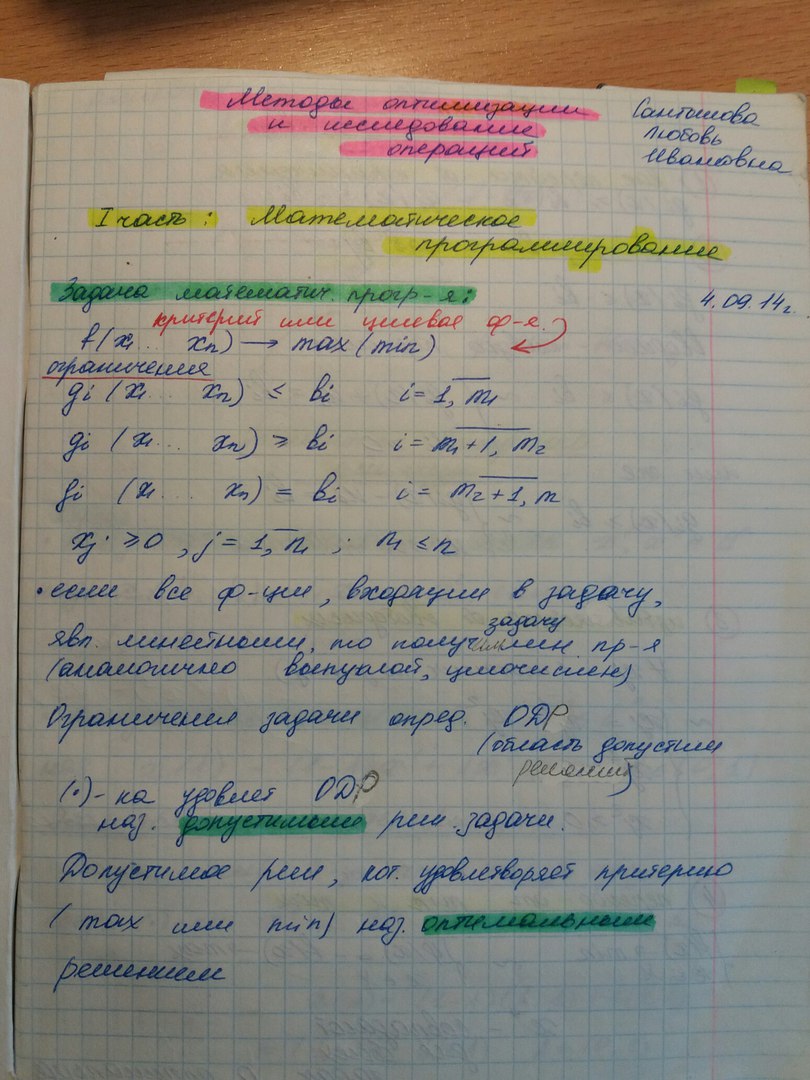 Методы оптимизации
и исследование
операций
Сантылова
Любовь
Ивановна
I часть: Математическое
программирование
Задача математич. прогр-я:
4.09.14г.
критерий или целевая ф-я.
f(x₁... xₙ) → max (min)
ограничения
gi (x₁... xₙ) ≤ bi i = 1, m₁
gi (x₁... xₙ) ≥ bi i = m₁+1, m₂
gi (x₁... xₙ) = bi i = m₂+1, m
xj ≥ 0, j = 1, n₁ ; n₁ ≤ n
• если все ф-ции, входящии в задачу,
задачу
явл. линейными, то получ лин. пр-я
(аналогично выпуклой, целочислен)
Ограничения задачи опред. ОДР
(область допустим
решений)
(•)-ка удовлет ОДР
наз. допустимым реш. задачи.
Допустимое реш, кот. удовлетворяет критерию
(max или min) наз. оптимальным
решением